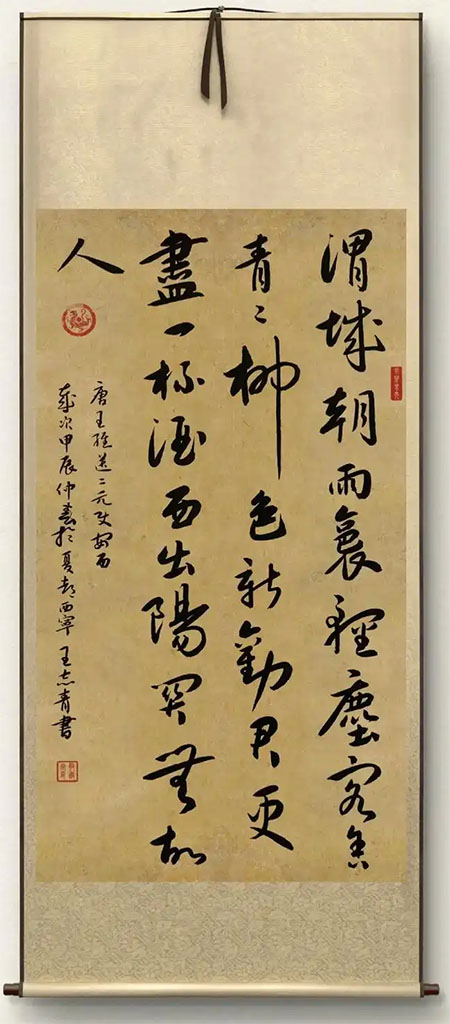 渭城朝雨裛輕塵客舍
青〻柳色新勸君更
盡一杯酒西出陽關無故
人
唐王維送二元使安西
歲次甲辰仲春於夏都西寧王志青書